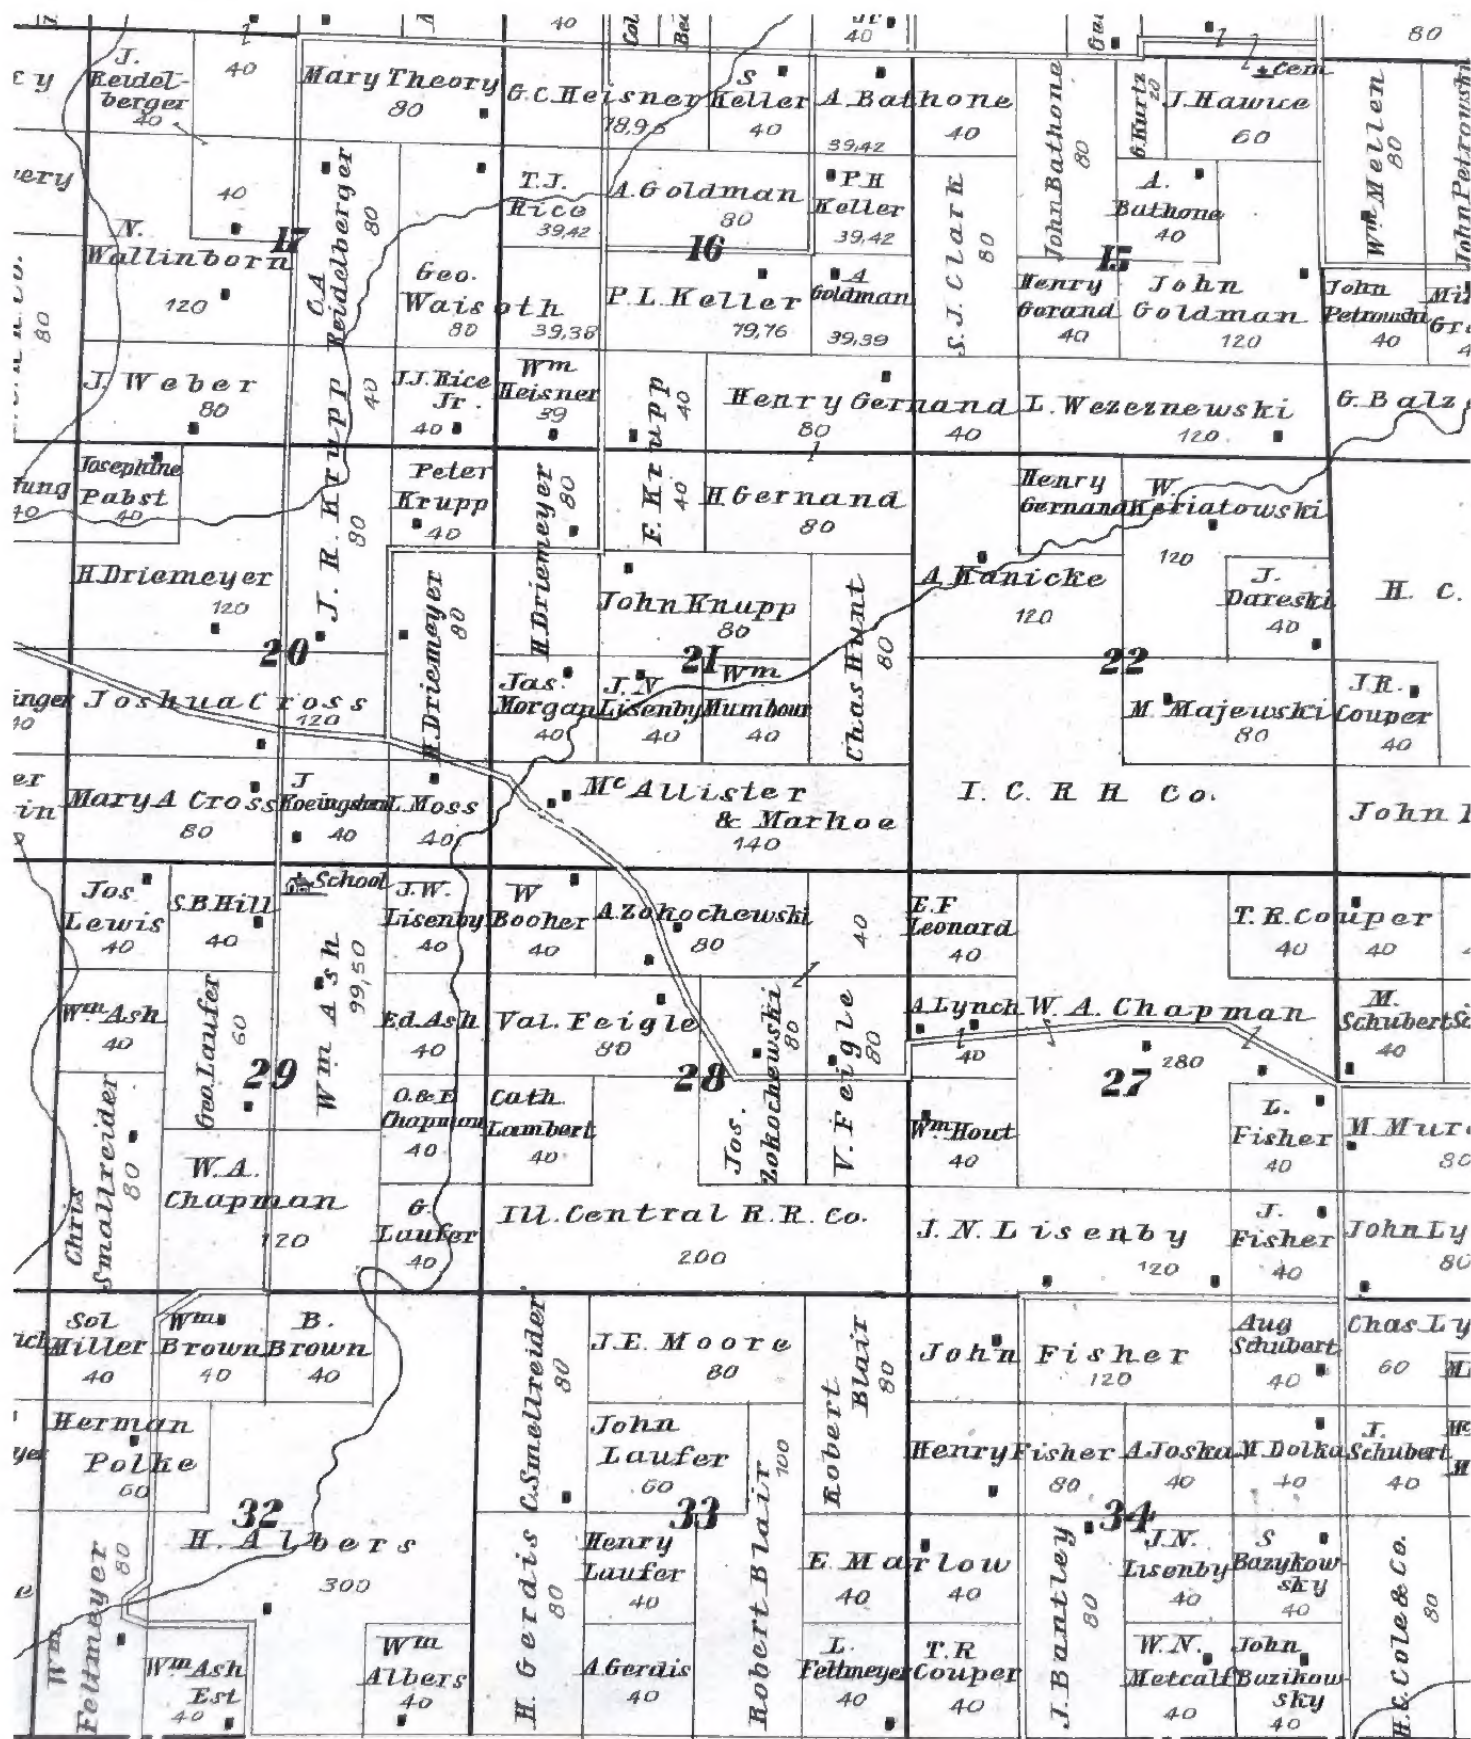 40
40
80
J.
Reidel-
berger
40
40
Mary Theory
80
G.C. Heisner
78,95
S
Keller
40
A. Bathone
39,42
40
John Bathone
80
G. Kurtz
20
Cem
J. Hawice
60
Wm Mellen
80
John Petrowski
ery
40
N.
Wallinborn
120
17
C.A.
Reidelberger
80
T.J.
Rice
39,42
A. Goldman
80
P.H
Keller
39,42
S.J. Clark
80
A.
Bathone
40
16
15
Geo.
Waisoth
80
39,38
P.L. Keller
79,76
A
Goldman
39,39
Henry
Gorand
40
John
Goldman
120
John
Petrowski
40
80
J. Weber
80
40
J.J. Rice
Jr.
40
Wm
Heisner
39
F. Krupp
40
40
Henry Gernand
80
40
L. Wezeznewski
120
G. Balz
Josephine
Pabst
40
tung
40
J.R. Krupp
80
Peter
Krupp
40
H. Driemeyer
80
H. Gernand
80
Henry
Gernand
W.
Keriatowski
120
H. Driemeyer
120
H. Driemeyer
80
John Knupp
80
Chas Hunt
80
A. Kanicke
120
J.
Dareski
40
H. C.
20
21
22
inger
40
Joshua Cross
120
Jas.
Morgan
40
J.N
Lisenby
40
Wm
Mumbour
40
M. Majewski
80
J.R.
Couper
40
er
in
Mary A Cross
80
J
Koeingshan
40
L. Moss
40
Mc Allister
& Marhoe
140
I. C. R R Co.
John
Jos
Lewis
40
S.B. Hill
40
School
J.W.
Lisenby
40
W
Booher
40
A. Zokochewski
80
40
E.F
Leonard
40
T.R. Couper
40
40
Wm Ash
40
Geo. Laufer
60
Wm Ash
99,50
Ed. Ash
40
Val. Feigle
80
Jos.
Zokochewski
80
V. Feigle
80
A. Lynch
40
W. A. Chapman
280
M.
Schubert
40
29
28
27
Chris
Smallreider
80
O. & E
Chapman
40
Cath.
Lambert
40
Wm Hout
40
L.
Fisher
40
M. Mur
80
W. A.
Chapman
120
G.
Laufer
40
Ill. Central R. R. Co.
200
J. N. Lisenby
120
J.
Fisher
40
John Ly
80
Sol
Miller
40
Wm
Brown
40
B.
Brown
40
C. Smellreider
80
J. E. Moore
80
Robert
Blair
80
John Fisher
120
Aug
Schubert
40
Chas Ly
60
Herman
Polke
60
John
Laufer
60
Robert Blair
100
Henry Fisher
80
A. Joska
40
M. Dolka
40
J.
Schubert
40
32
33
34
H. Albers
300
H. Gerdis
80
Henry
Laufer
40
E. Marlow
40
40
J. Bantley
80
J.N.
Lisenby
40
S
Bazykow-
sky
40
H.C. Cole & Co.
80
Wm
Feltmeyer
80
Wm Ash
Est
40
Wm
Albers
40
A. Gerdis
40
L.
Feltmeyer
40
T.R
Couper
40
W. N.
Metcalf
40
John
Bazikow-
sky
40